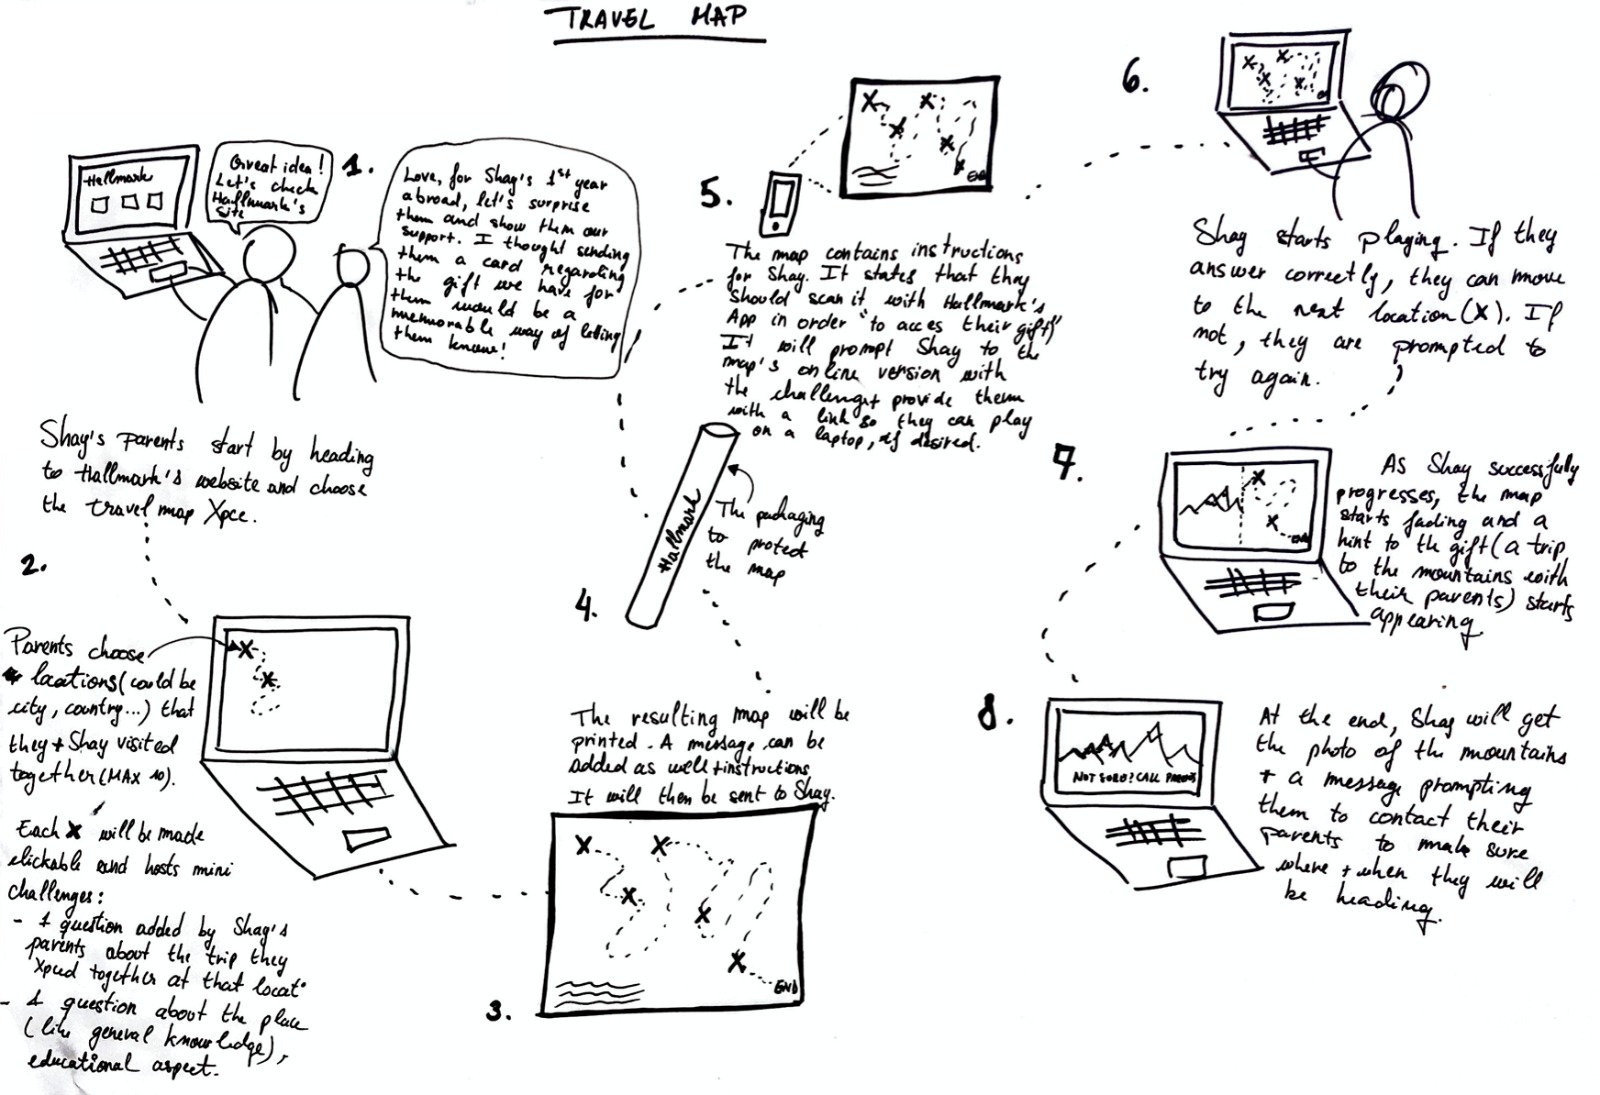 TRAVEL MAP
1.
Hallmark
Great idea!
Let's check
Hallmark's
site
Love, for Shay's 1st year
abroad, let's surprise
them and show them our
support. I thought sending
them a card regarding
the gift we have for
them would be a
memorable way of letting
them know!
Shay's parents start by heading
to Hallmark's website and choose
the travel map Xpce.
2.
Parents choose
locations (could be
city, country...) that
they + Shay visited
together (MAX 10).
Each X will be made
clickable and hosts mini
challenges:
- 1 question added by Shay's
parents about the trip they
Xpced together at that locat.
- 1 question about the place
(like general knowledge),
educational aspect.
3.
The resulting map will be
printed. A message can be
added as well + instructions
It will then be sent to Shay.
X X
X
X
X
END
4.
Hallmark
The packaging
to protect
the map
5.
X X
X
X
X
END
The map contains instructions
for Shay. It states that they
should scan it with Hallmark's
App in order "to acces their gift"
It will prompt Shay to the
map's online version with
the challenges + provide them
with a link so they can play
on a laptop, if desired.
6.
Shay starts playing. If they
answer correctly, they can move
to the next location (X). If
not, they are prompted to
try again.
7.
END
As Shay successfully
progresses, the map
starts fading and a
hint to the gift (a trip
to the mountains with
their parents) starts
appearing
8.
NOT SURE? CALL PARENTS
At the end, Shay will get
the photo of the mountains
+ a message prompting
them to contact their
parents to make sure
where + when they will
be heading.